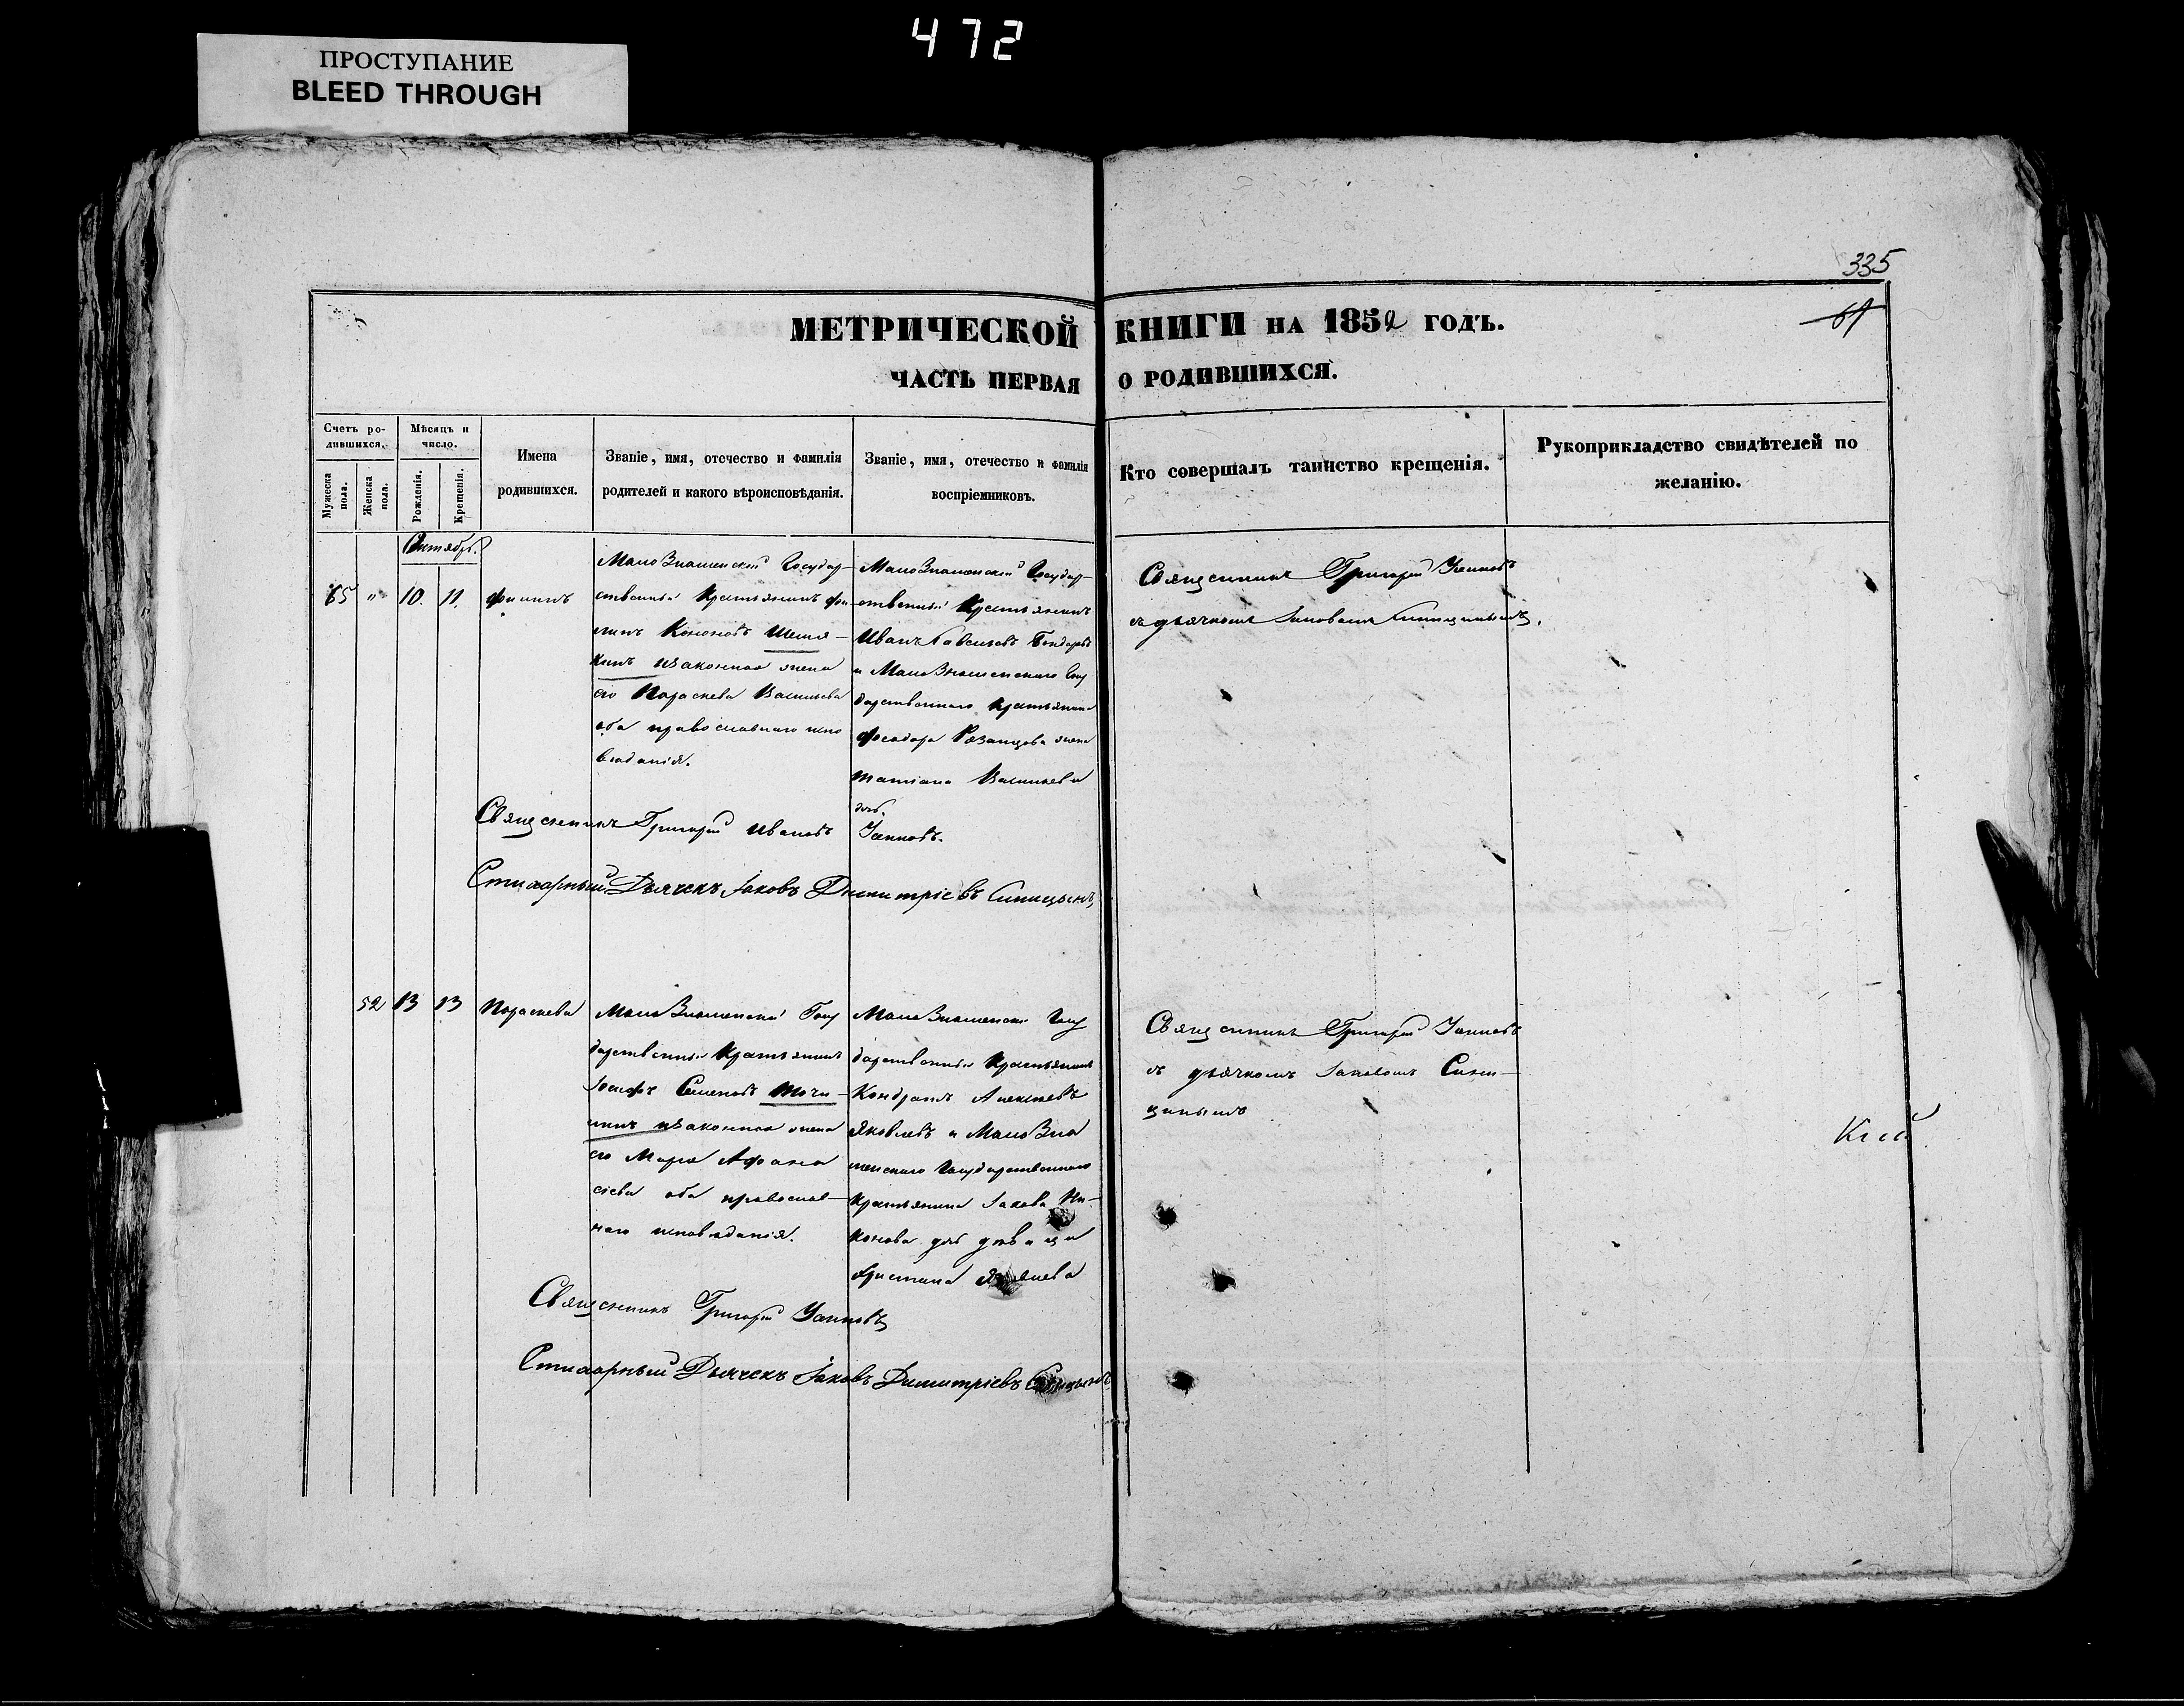 472
ПРОСТУПАНИЕ
BLEED THROUGH
335
61
МЕТРИЧЕСКОЙ КНИГИ НА 1852 ГОДЪ.
ЧАСТЬ ПЕРВАЯ О РОДИВШИХСЯ.
Счетъ ро-
дившихся.
Мужеска
пола.
Женска
пола.
Мѣсяцъ и
число.
Рожденія.
Крещенія.
Имена
родившихся.
Званіе, имя, отечество и фамилія
родителей и какого вѣроисповѣданія.
Званіе, имя, отечество и фамилія
воспріемниковъ.
Кто совершалъ таинство крещенія.
Рукоприкладство свидѣтелей по
желанію.
Октябрь.
65 " 10. 11. Филипъ
МалоЗнаменскій Государ-
ственный Крестьянинъ Фи-
липъ Кононовъ Шемя-
кинъ изаконная жена
его Параскева Васильева
оба православнаго испо
веданія.
МалоЗнаменскій Государ-
ственный Крестьянинъ
Иванъ Савельевъ Бондаревъ
и МалоЗнаменскаго Госу
дарственнаго Крестьянина
Феодора жена
Татіана Васильева
дочь.
Священникъ Григорій Уаповъ
съ дьячкомъ Іаковомъ Синицынымъ.
Священникъ Григорій Ивановъ
Стихарный Дьячекъ Іаковъ Димитріевъ Синицынъ
52 13 13 Параскева
МалоЗнаменскій Госу
дарственный Крестьянинъ
Іосифъ Семеновъ Точи-
линъ изаконная жена
его Марія Афана
сіева оба православ-
наго исповеданія.
МалоЗнаменскій Госу
дарственный Крестьянинъ
Кондратъ Алексеевъ
Яковлевъ и МалоЗна
менскаго Государственнаго
Крестьянина Іакова Ни-
конова дочь девица
Христина Яковлева
Священникъ Григорій
съ дьячкомъ Іаковомъ Сини-
цынымъ
Священникъ Григорій
Стихарный Дьячекъ Іаковъ Димитріевъ Синицынъ